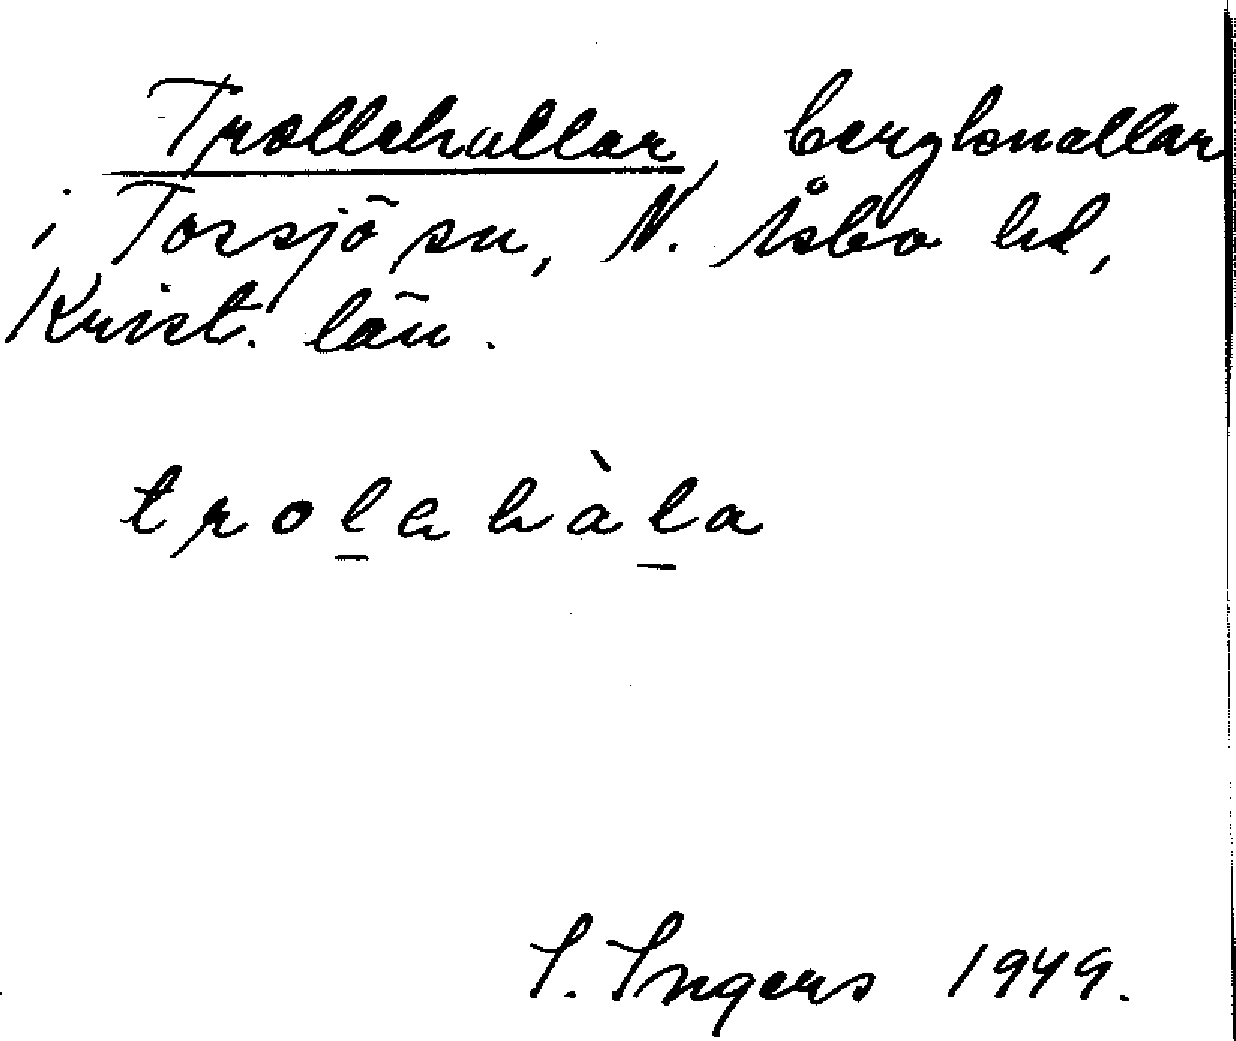 Trollehallar, bergknallar
i Tossjö sn, N. Åsbo hd,
Krist. län.
trolahàla
I. Ingers 1949.